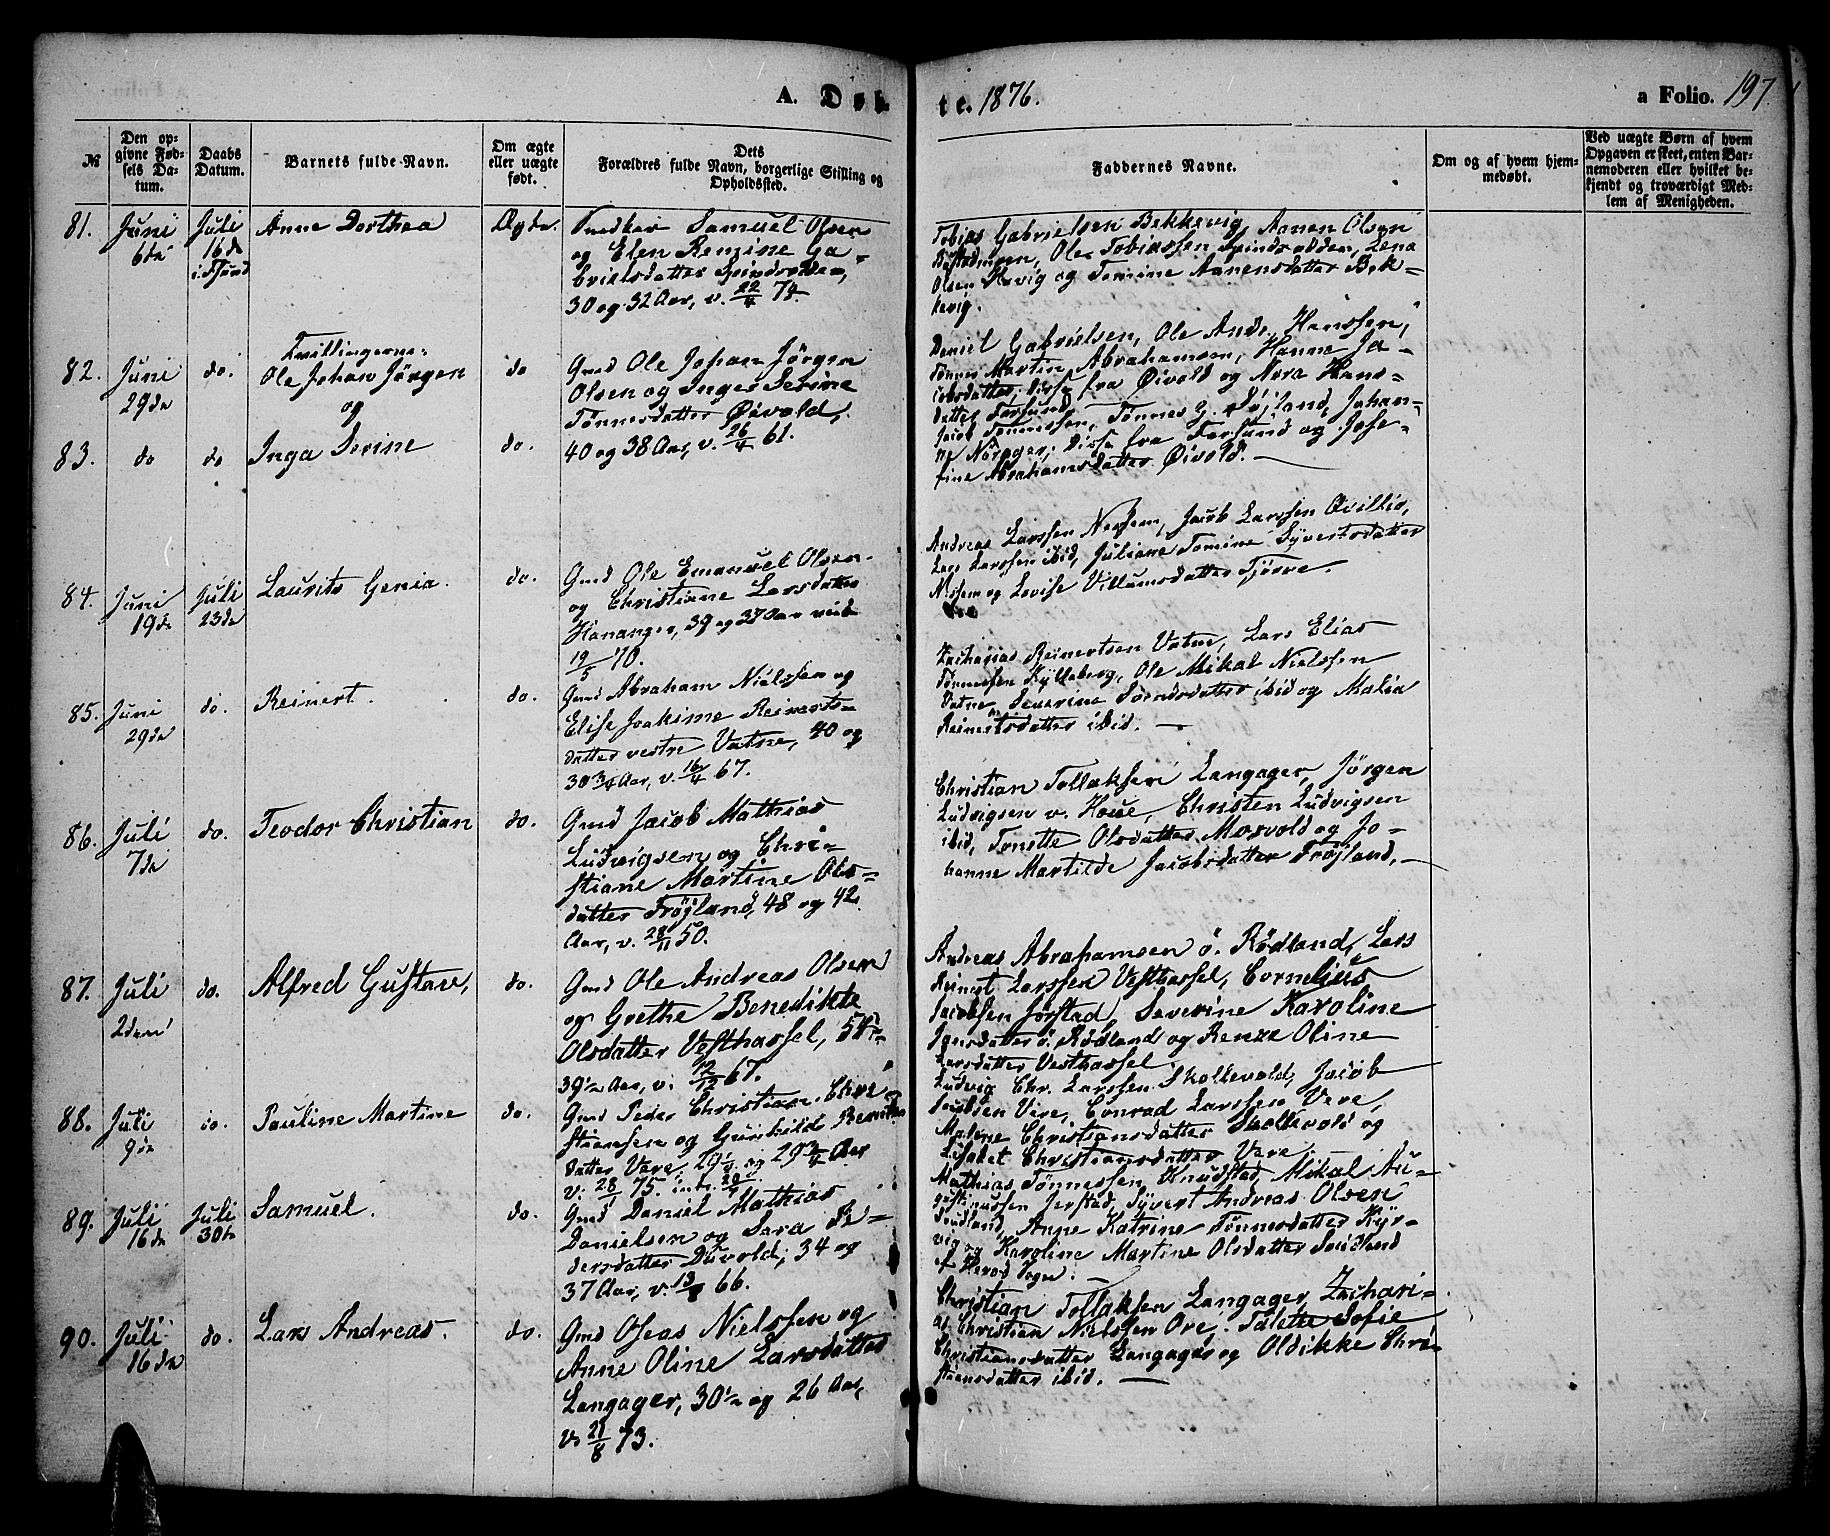 A. Døb-
te. 1876.
a Folio. 197.
№
Den op-
givne Fød-
sels Da-
tum.
Daabs
Datum.
Barnets fulde Navn.
Om ægte
eller uægte
født.
Dets
Forældres fulde Navn, borgerlige Stilling og
Opholdssted.
Faddernes Navne.
Om og af hvem hjem-
medøbt.
Ved uægte Børn af hvem
Opgaven er skeet, enten Bar-
nemoderen eller hvilket be-
kjendt og troværdigt Med-
lem af Menigheden.
81.
Juni
6te
Juli
16de
Anne Dorthea
Ægte.
Snedker Samuel Olsen
og Elen Remine Ga-
brielsdatter Spindsodden,
30 og 32 Aar, v. 22/4 74.
Tobias Gabrielsen Bekkevig, Aanen Olsen
Ole Tobiassen Spindsodden, Lena
Olsen og Tomine Aanensdatter Bek-
kevig.
82.
Juni
29de
do.
Tvillingerne
Ole Johan Jørgen
og
do
Gmd Ole Johan Jørgen
Olsen og Inger Serine
Tønnesdatter Øivold,
40 og 38 Aar, v. 26/4 61.
Daniel Gabrielsen, Ole Andr. Hanssen,
Tønnes Martin Abrahamsen, Hanne Ja-
cobsdatter, disse fra Øivold og Nora Hans-
datter Farsund
83.
do
do
Inga Serine
do.
Jacob Tønnessen, Tønnes Johan-
ne disse fra Farsund og Jose-
fine Abrahamsdatter Øivold.
84.
Juni
19de
Juli
23de
Laurits Genia
do.
Gmd Ole Emanuel Olsen
og Christiane Larsdatter
Hananger, 39 og 37 Aar viede
19/5 70.
Andreas Larssen Nessem, Jacob Larssen
Lars Larssen ibid, Juliane Tomine Syvertsdatter
Nessem og Lovise Villumsdatter Tjørve
85.
Juni
29de
do.
Reinert.
do.
Gmd Abraham Nielssen og
Elise Joakime Reinerts-
datter vestre Vatne, 40 og
30 3/4 Aar, v. 16/4 67.
Zacharias Reinertsen Vatne, Lars Elias
Tønnessen Ole Mikal Nielssen
Vatne, Severine ibid og Malia
Reinertsdatter ibid.
86.
Juli
7de
do.
Teodor Christian
do.
Gmd Jacob Mathias
Ludvigsen og Chri-
stiane Martine Ols-
datter Frøjland, 48 og 42
Aar, v. 28/11 50.
Christian Tollaksen Langager, Jørgen
Ludvigsen v. Houe, Christen Ludvigsen
ibid, Tonette Olsdatter Mosvold og Jo-
hanne Martilde Jacobsdatter Frøjland.
87.
Juli
2den
do.
Alfred Gustav,
do.
Gmd Ole Andreas Olsen
og Grethe Benedikte
Olsdatter Vesthassel,
39 1/2 Aar, v. 12/12 67.
Andreas Abrahamsen ö. Rødland, Lars
Reinert Larssen Vesthassel, Cornelius
Jacobsen Jørstad, Severine Karoline
Jonsdatter ö. Rødland og Oline
Larsdatter Vesthassel
88.
Juli
9de
do.
Pauline Martine
do.
Gmd Peder Christian Chri-
stiansen og Gunhild
datter Vere, 29 1/4 og 29 3/4 Aar
v. 28/1 75.
Ludvig Chr. Larssen Skollevold, Jacob
Jacobsen Vere, Conrad Larssen Vere,
Malene Christiansdatter Skollevold og
Lisabet Christiansdatter Vere.
89.
Juli
16de
Juli
30te
Samuel.
do.
Gmd Daniel Mathias
Danielsen og Sara Pe-
dersdatter Duvold, 34 og
37 Aar, v. 13/8 66.
Mathias Tønnessen Knudstad, Mikal Au-
gustinussen Jerstad, Syvert Andreas Olsen
Anne Katrine Tønnesdatter Kyr-
vig og Karoline Martine Olsdatter
af Herod Sogn.
90.
Juli
16de
do.
Lars Andreas.
do.
Gmd Oseas Nielssen og
Anne Oline Larsdatter
Langager, 30 1/2 og 26 Aar,
v. 21/8 73.
Christian Tollaksen Langager, Zachari-
as Christian Nielssen Ore, Talette Sofie
Christiansdatter Langager og Oldikke Chri-
stiansdatter ibid.